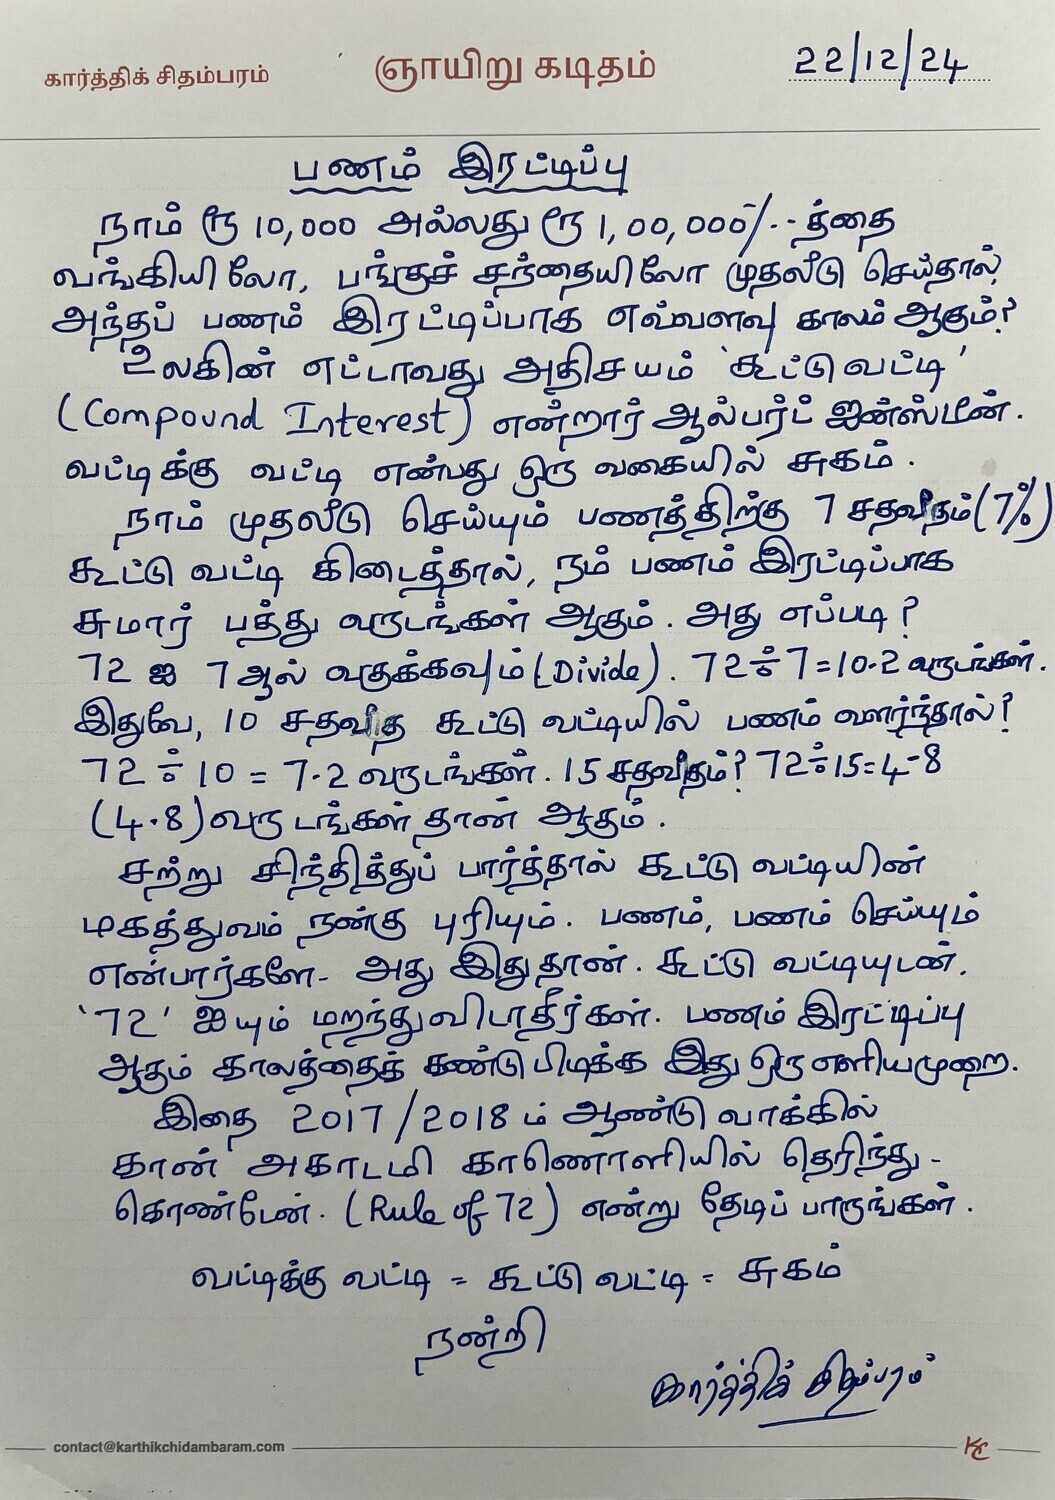 கார்த்திக் சிதம்பரம்
ஞாயிறு கடிதம்
22/12/24
பணம் இரட்டிப்பு
நாம் ரூ 10,000 அல்லது ரூ 1,00,000/-- த்தை
வங்கியிலோ, பங்குச் சந்தையிலோ முதலீடு செய்தால்
அந்தப் பணம் இரட்டிப்பாக எவ்வளவு காலம் ஆகும்?
உலகின் எட்டாவது அதிசயம் 'கூட்டு வட்டி'
(Compound Interest) என்றார் ஆல்பர்ட் ஐன்ஸ்டீன்.
வட்டிக்கு வட்டி என்பது ஒரு வகையில் சுகம்.
நாம் முதலீடு செய்யும் பணத்திற்கு 7 சதவீதம் (7%)
கூட்டு வட்டி கிடைத்தால், நம் பணம் இரட்டிப்பாக
சுமார் பத்து வருடங்கள் ஆகும். அது எப்படி?
72 ஐ 7 ஆல் வகுக்கவும் (Divide). 72 ÷ 7 = 10.2 வருடங்கள்.
இதுவே, 10 சதவீத கூட்டு வட்டியில் பணம் வளர்ந்தால்?
72 ÷ 10 = 7.2 வருடங்கள். 15 சதவீதம்? 72÷15=4-8
(4.8) வருடங்கள் தான் ஆகும்.
சற்று சிந்தித்துப் பார்த்தால் கூட்டு வட்டியின்
மகத்துவம் நன்கு புரியும். பணம், பணம் செய்யும்
என்பார்களே- அது இதுதான். கூட்டு வட்டியுடன்.
'72' ஐயும் மறந்துவிடாதீர்கள். பணம் இரட்டிப்பு
ஆகும் காலத்தைக் கண்டுபிடிக்க இது ஒரு எளியமுறை.
இதை 2017/2018 ம் ஆண்டு வாக்கில்
கான் அகாடமி காணொளியில் தெரிந்து -
கொண்டேன். (Rule of 72) என்று தேடிப் பாருங்கள்.
வட்டிக்கு வட்டி = கூட்டு வட்டி = சுகம்
நன்றி
கார்த்திக் சிதம்பரம்
contact@karthikchidambaram.com
KC